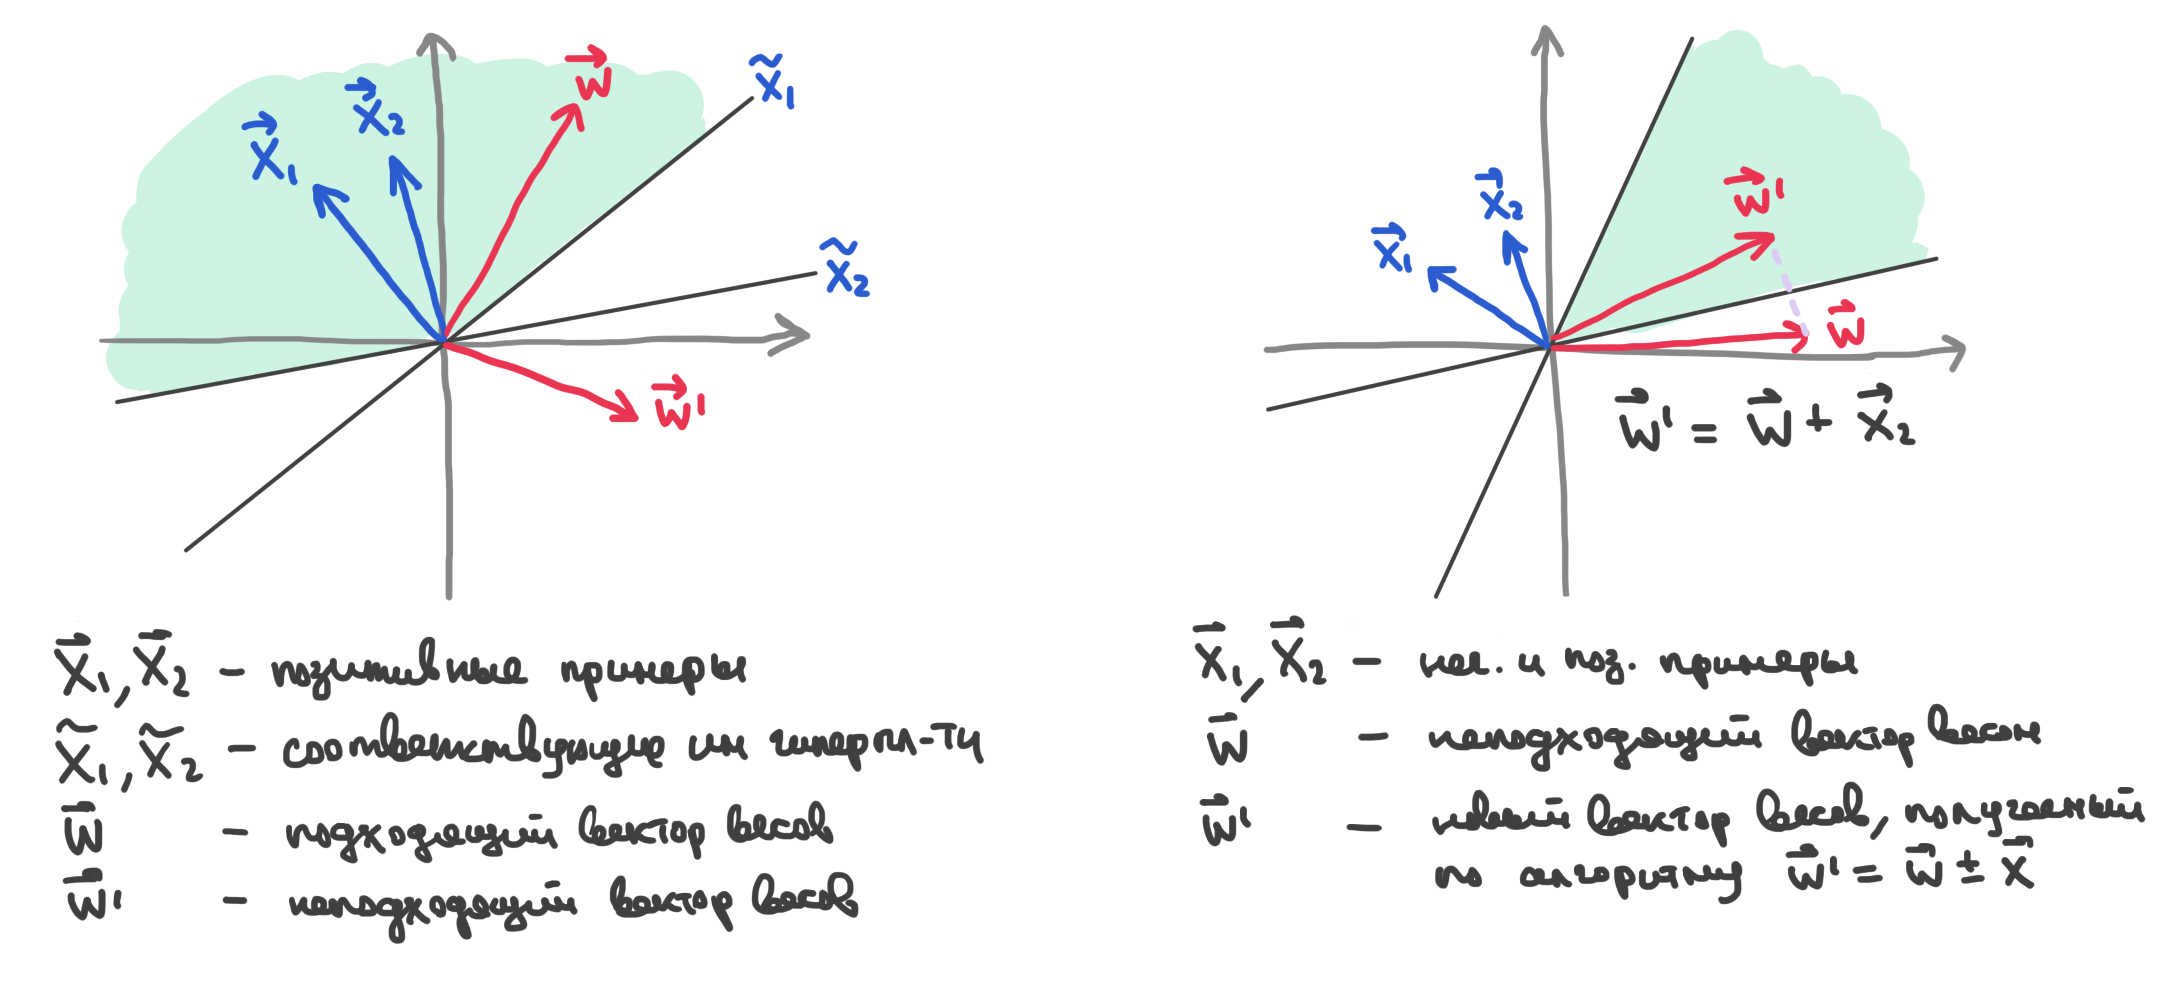 x⃗₁
x⃗₂
w⃗
x̃₁
x̃₂
w⃗'
x⃗₁
x⃗₂
w⃗'
w⃗
w⃗' = w⃗ + x⃗₂
x⃗₁, x⃗₂ – позитивные примеры
x̃₁, x̃₂ – соответствующие им гиперпл-ти
w⃗ – подходящий вектор весов
w⃗' – неподходящий вектор весов
x⃗₁, x⃗₂ – нег. и поз. примеры
w⃗ – неподходящий вектор весов
w⃗' – новый вектор весов, полученный
по алгоритму w⃗' = w⃗ ± x⃗